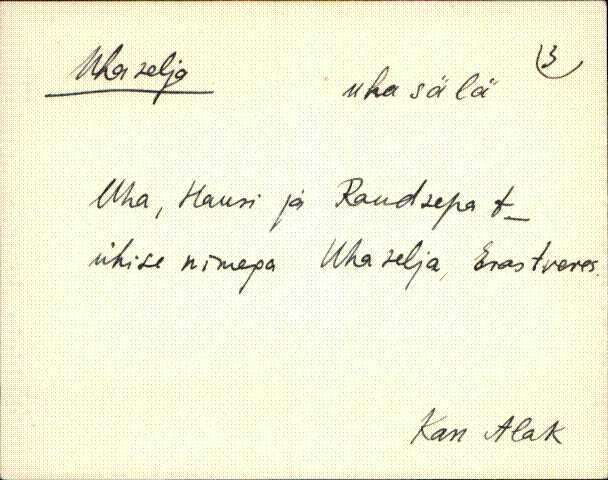 Uhaselja
uha sälä
3
Uha, Hausi ja Raudsepa t_
ühise nimega Uhaselja, Erastveres.
Kan Alak